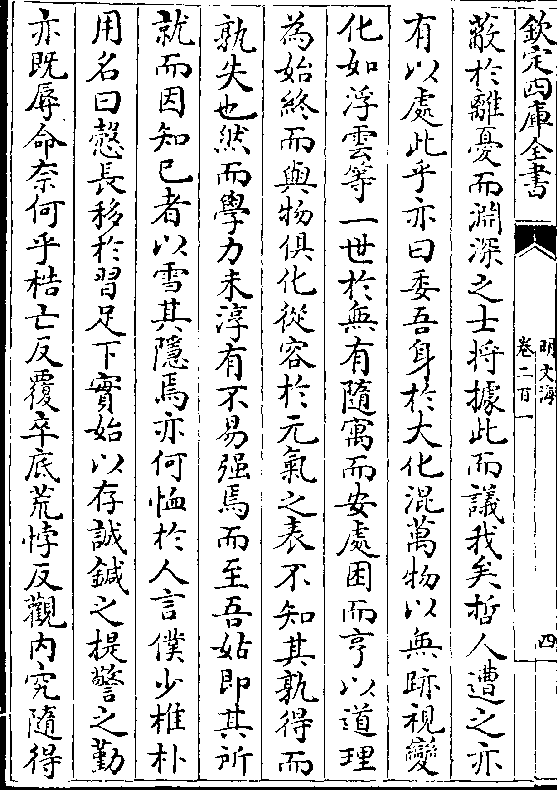 欽定四庫全書
明文海
卷二百一
四
蔽於離憂而淵深之士将據此而議我矣哲人遭之亦
有以處此乎亦曰委吾身於大化混萬物以無跡視變
化如浮雲等一世於無有隨寓而安處困而亨以道理
為始終而與物俱化從容於元氣之表不知其孰得而
孰失也然而學力未淳有不易强焉而至吾姑即其所
就而因知已者以雪其隱焉亦何恤於人言僕少椎朴
用名曰慤長移於習足下實始以存誠鍼之提警之勤
亦既辱命奈何乎梏亡反覆卒底荒悖反觀内究隨得